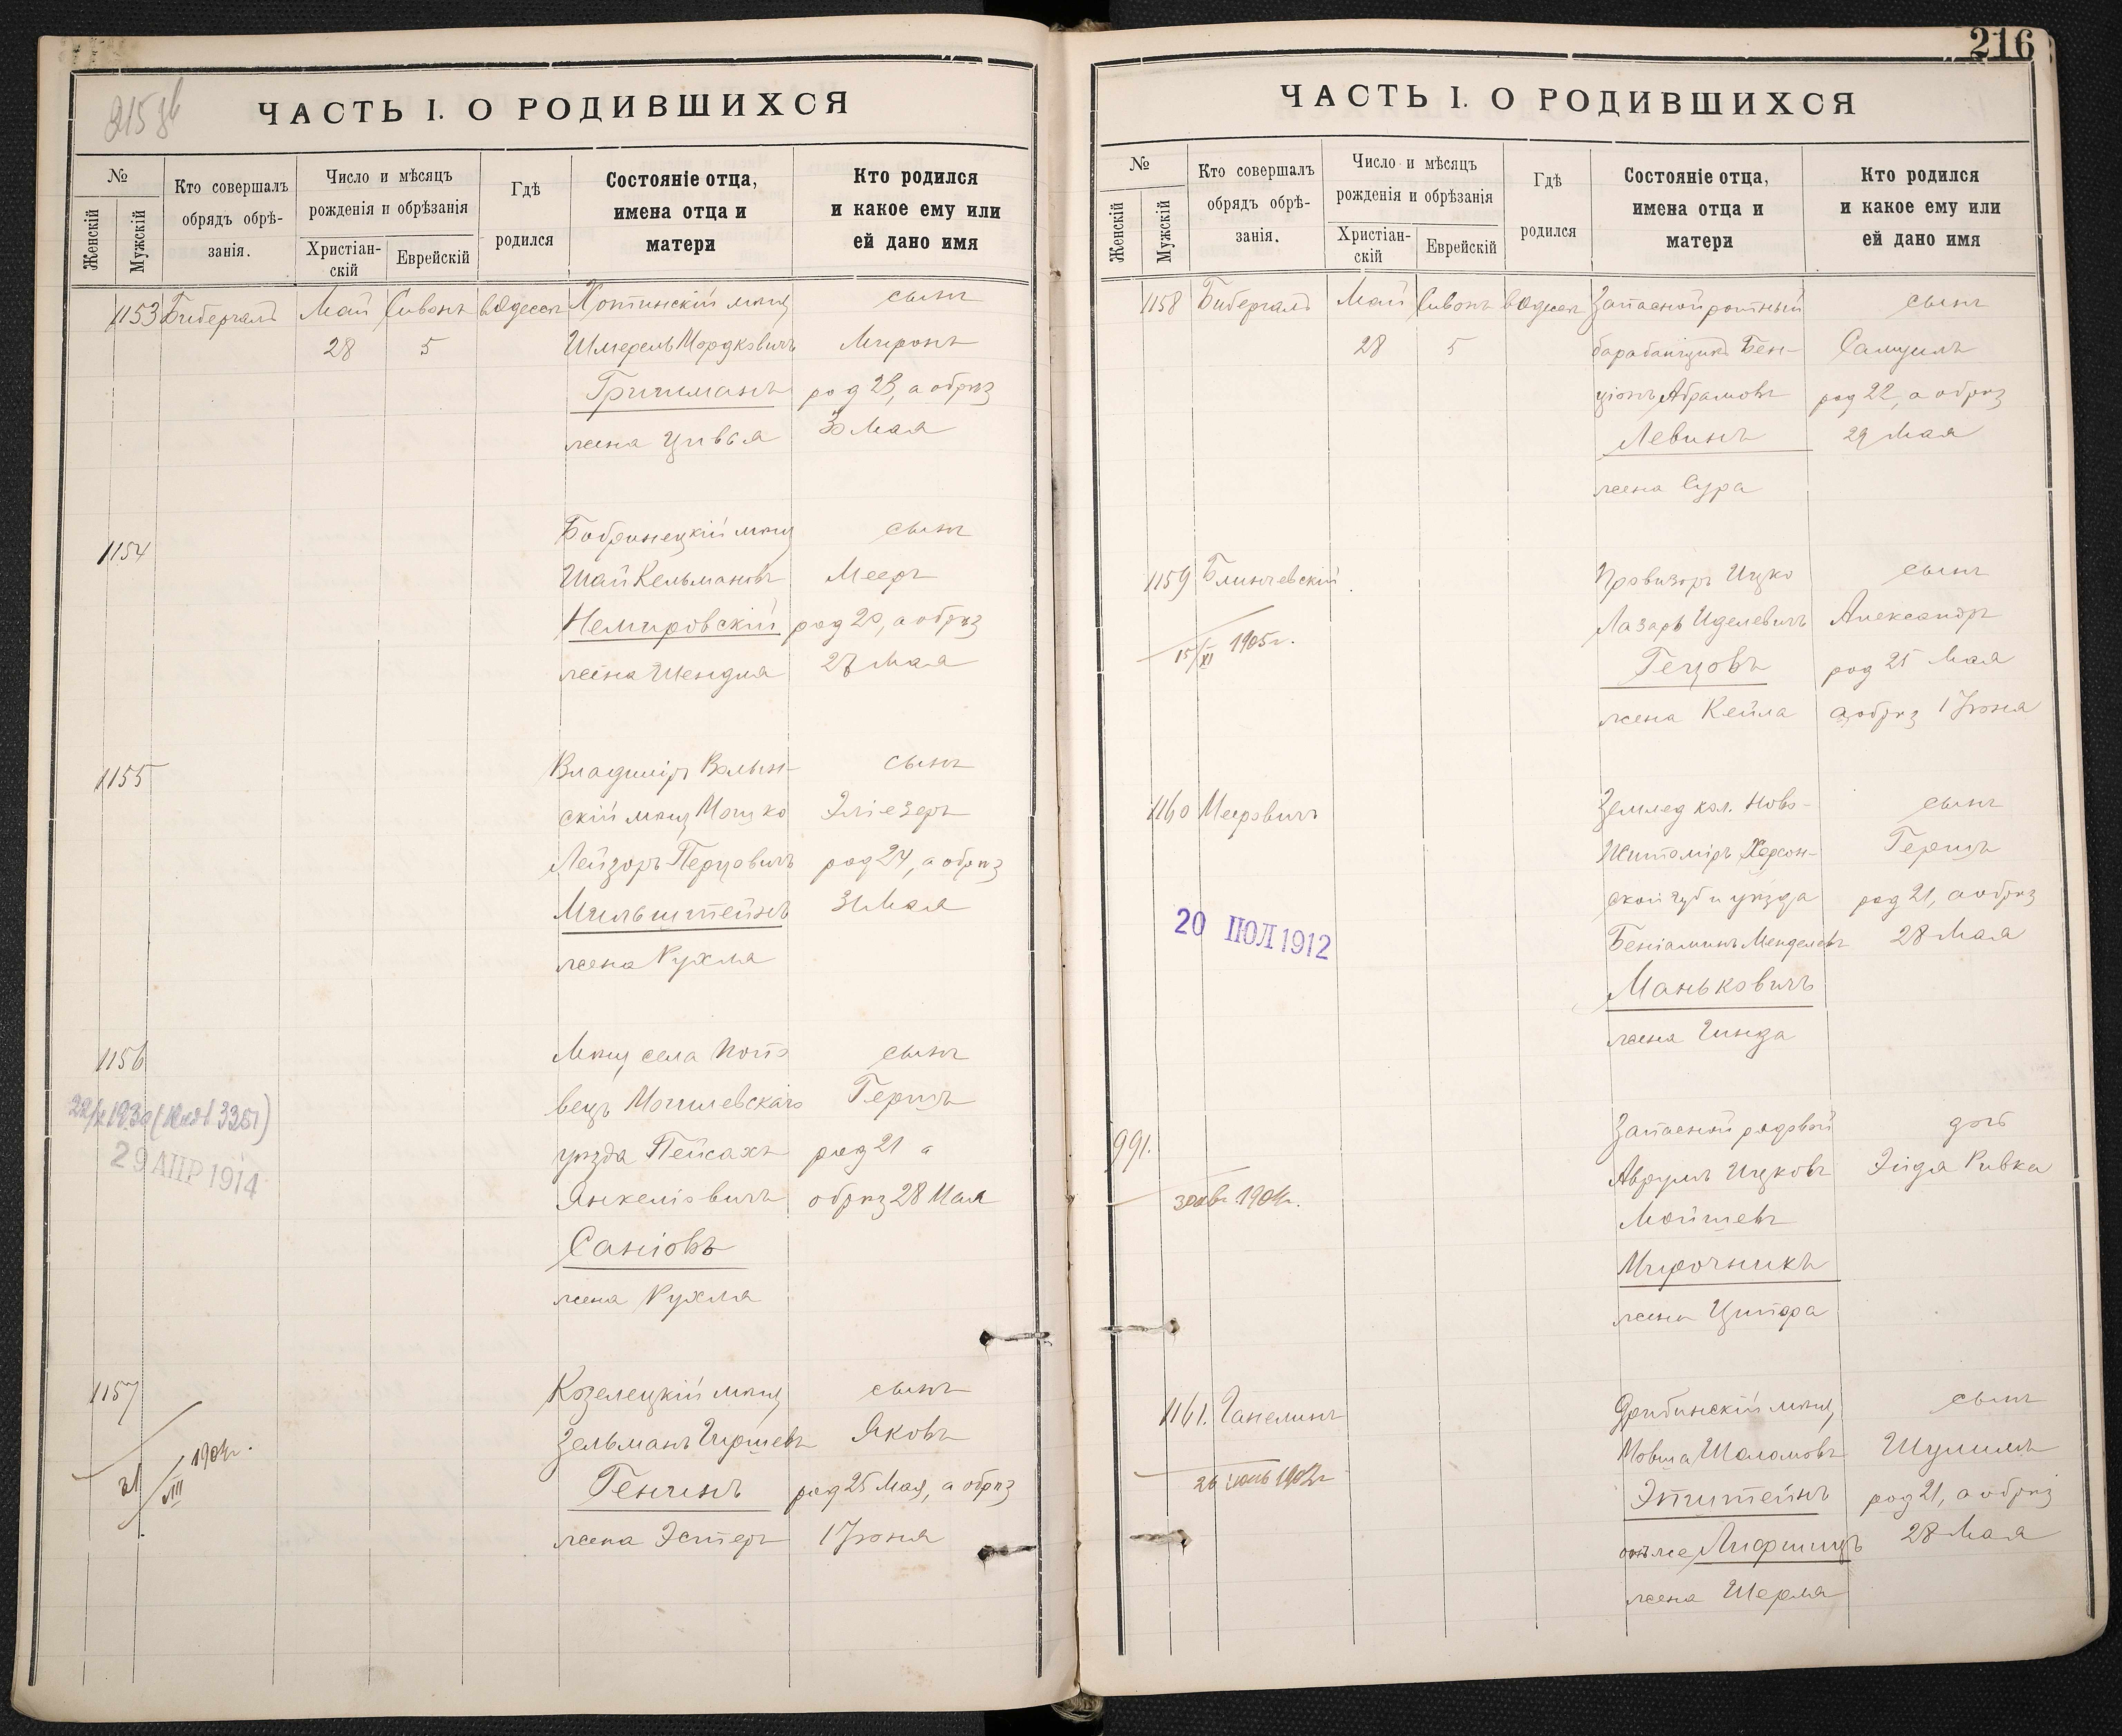 215 зв
ЧАСТЬ I. О РОДИВШИХСЯ
№
Женскій
Мужскій
Кто совершалъ
обрядъ обрѣ-
занія.
Число и мѣсяцъ
рожденія и обрѣзанія
Христіан-
скій
Еврейскій
Гдѣ
родился
Состояніе отца,
имена отца и
матери
Кто родился
и какое ему или
ей дано имя
1153 Бибергалъ Май Сивонъ въ Одессѣ Хотинскій мѣщ сынъ
28 5 Шмерель Мордковичъ Миронъ
род 23, а обрѣз
жена Цивья 30 Мая
1154 Бобринецкій мѣщ сынъ
Шая Кельмановъ Мееръ
Немировскій род 20, а обрѣз
жена Шендля 27 Мая
1155 Владимиръ Волын- сынъ
скій мѣщ Мошко Эліезеръ
Лейзоръ Перцовичъ род 24, а обрѣз
Мильштейнъ 31 Мая
жена Рухля
1156 Мѣщ села сынъ
вецъ Могилевскаго Гершъ
уѣзда Пейсахъ род 21 а
Янкеліовичъ обрѣз 28 Мая
29 АПР 1914
Саніовъ
жена Рухля
1157 Козелецкій мѣщ сынъ
Зельманъ Гиршевъ Яковъ
31/VIII 1904г.
Генинъ род 25 Мая, а обрѣз
жена Эстеръ 1 Іюня
216
ЧАСТЬ I. О РОДИВШИХСЯ
№
Женскій
Мужскій
Кто совершалъ
обрядъ обрѣ-
занія.
Число и мѣсяцъ
рожденія и обрѣзанія
Христіан-
скій
Еврейскій
Гдѣ
родился
Состояніе отца,
имена отца и
матери
Кто родился
и какое ему или
ей дано имя
1158 Бибергалъ Май Сивонъ въ Одессѣ Запасной ротный сынъ
28 5 барабанщикъ Бен- Самуилъ
ціонъ Абрамовъ род 22, а обрѣз
Левинъ 29 Мая
жена Сура
1159 Блинчевскій Провизоръ Ицко сынъ
Лазарь Иделевичъ Александръ
15/XI 1905г.
Гецовъ род 25 Мая
жена Кейла а обрѣз 1 Іюня
1160 Мееровичъ Землед кол. Ново- сынъ
Житоміръ Херсон- Гершъ
ской губ и уѣзда род 21, а обрѣз
20 ІЮЛ 1912
Беніаминъ Менделевъ 28 Мая
Маньковичъ
жена Гинда
991. Запасной рядовой дочь
Аврумъ Ицковъ Эйдя Ривка
Мойшевъ
Мирочникъ
жена Ципора
1161. Ганелинъ Дрибинскій мѣщ, сынъ
Мовша Шоломовъ Шулимъ
Эпштейнъ род 21, а обрѣз
онъ же Лифшицъ 28 Мая
жена Шерля